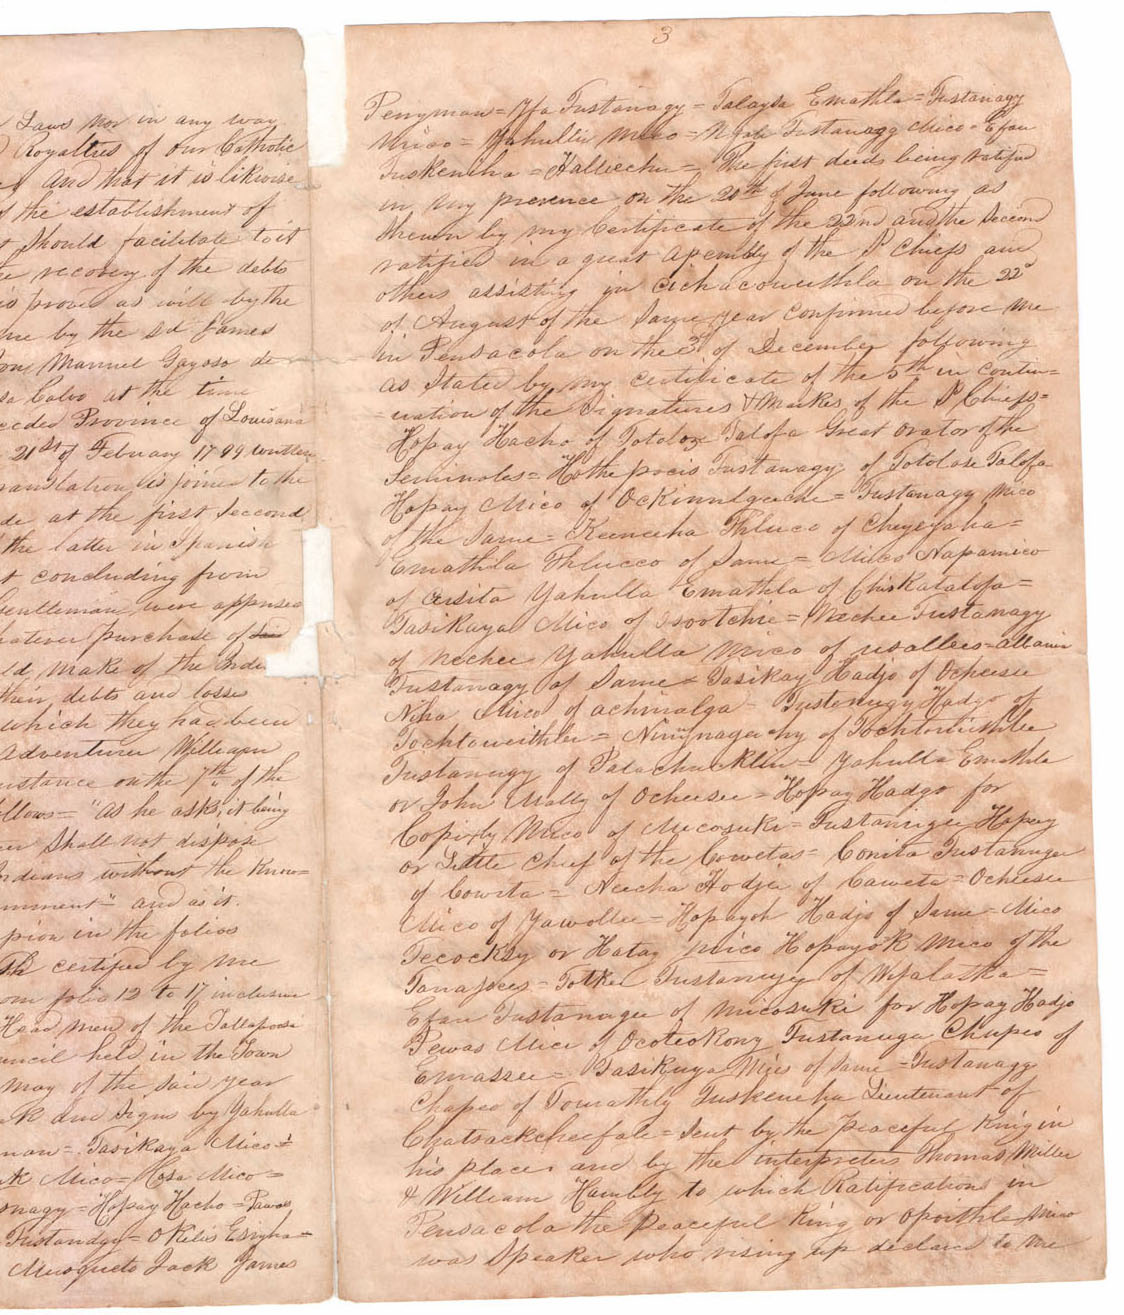 Laws nor in any way
Royalties of our Catholic
And that it is likewise
of the establishment of
t should facilitate to it
recovery of the debts
is proved as will by the
me by the sd James
Manuel Gayoso de
Calvo at the time
ceeded Province of Louisiana
21st of February 1799 written
ranslation is joined to the
de at the first second
the latter in Spanish
t concluding from
Gentleman were apprised
hatever purchase of
ld make of the Inde
their debts and losses
which they had been
adventurer William
instance on the 7th of the
ollows= "As he asks, it being
shall not dispose
ndians without the Know=
rnment" and as it
pion in the folios
certified by me
om folio 12 to 17 inclusive
Head men of the Tallapoosie
uncil held in the Town
May of the said year
k and signs by Yahulla
man = Tasikaya Mico =
k Mico = Hosa Mico =
snagy = Hopay Hacho = Pawas
Tustanagy = Okelis Esnyha =
Musqueto Jack James
3
Perryman = Yfa Tustanagy = Talaysa Emathla = Tustanagy
Mico = Yahulla Mico = Tustanagy Mico = Efau
Tuskeniha = Hallecchu = The first deeds being ratified
in my presence on the 20th of June following as
shewn by my Certificate of the 22nd and the Second
ratified in a great assembly of the Sd Chiefs and
others assisting in Achacoweithla on the 22d
of August of the Same year Confirmed before me
in Pensacola on the 3d of December following
as Stated by my certificate of the 5th in contin=
=uation of the Signatures & Markes of the Sd Chiefs=
Hopay Hacho of Totoloze Talofa Great orator of the
Seminoles = Hothepocis Tustanagy of Totolose Talofa
Hopay Mico of Ockinnulgeche = Tustanagy Mico
of the Same = Keeneeha Thluco of Cheyeyaha =
Emathla Thlucco of Same = Mico Napamico
of Cusita Yahulla Emathla of Chiskatalofa =
Tasikaya Mico of Osootchie = Nechee Tustanagy
of Nechee Yahulla Mico of usallees = albamee
Tustanagy of Same = Tasikay Hadjo of Ocheesee
Niha Mico of achinalga = Tustanugy Hadgo of
Tochtoweithlee = Ninnynageechy of Tochtoweithlee
Tustanugy of Palachucklin = Yahulla Emathla
or John Mally of Ocheesee = Hopay Hadgo for
Copixly Mico of Micosuki = Tustanugee Hopey
or Little Chief of the Cowetas = Conita Tustanuge
of Cowita = Neecha Hodja of Caweta = Ocheesee
Mico of Yawollee = Hopayoh Hadjo of Same = Mico
Tecocksy or Hatay Mico Hopayok Mico of the
Tanapees = Totkee Tustanugy of Wifalatka =
Efau Tustanagee of Micosuki for Hopay Hadjo
Pewas Mice of Ocoteokony Tustanuga Chupco of
Emassee = Tasikuya Mico of Same = Tustanagy
Chapco of Tomathly Tuskeneha Lieutenant of
Chatsackcheefale = Sent by the Peaceful King in
his place and by the interpreters Thomas Miller
& William Hambly to which Ratifications in
Pensacola the Peaceful King or Opoithle Mico
was Speaker who rising up declared to me